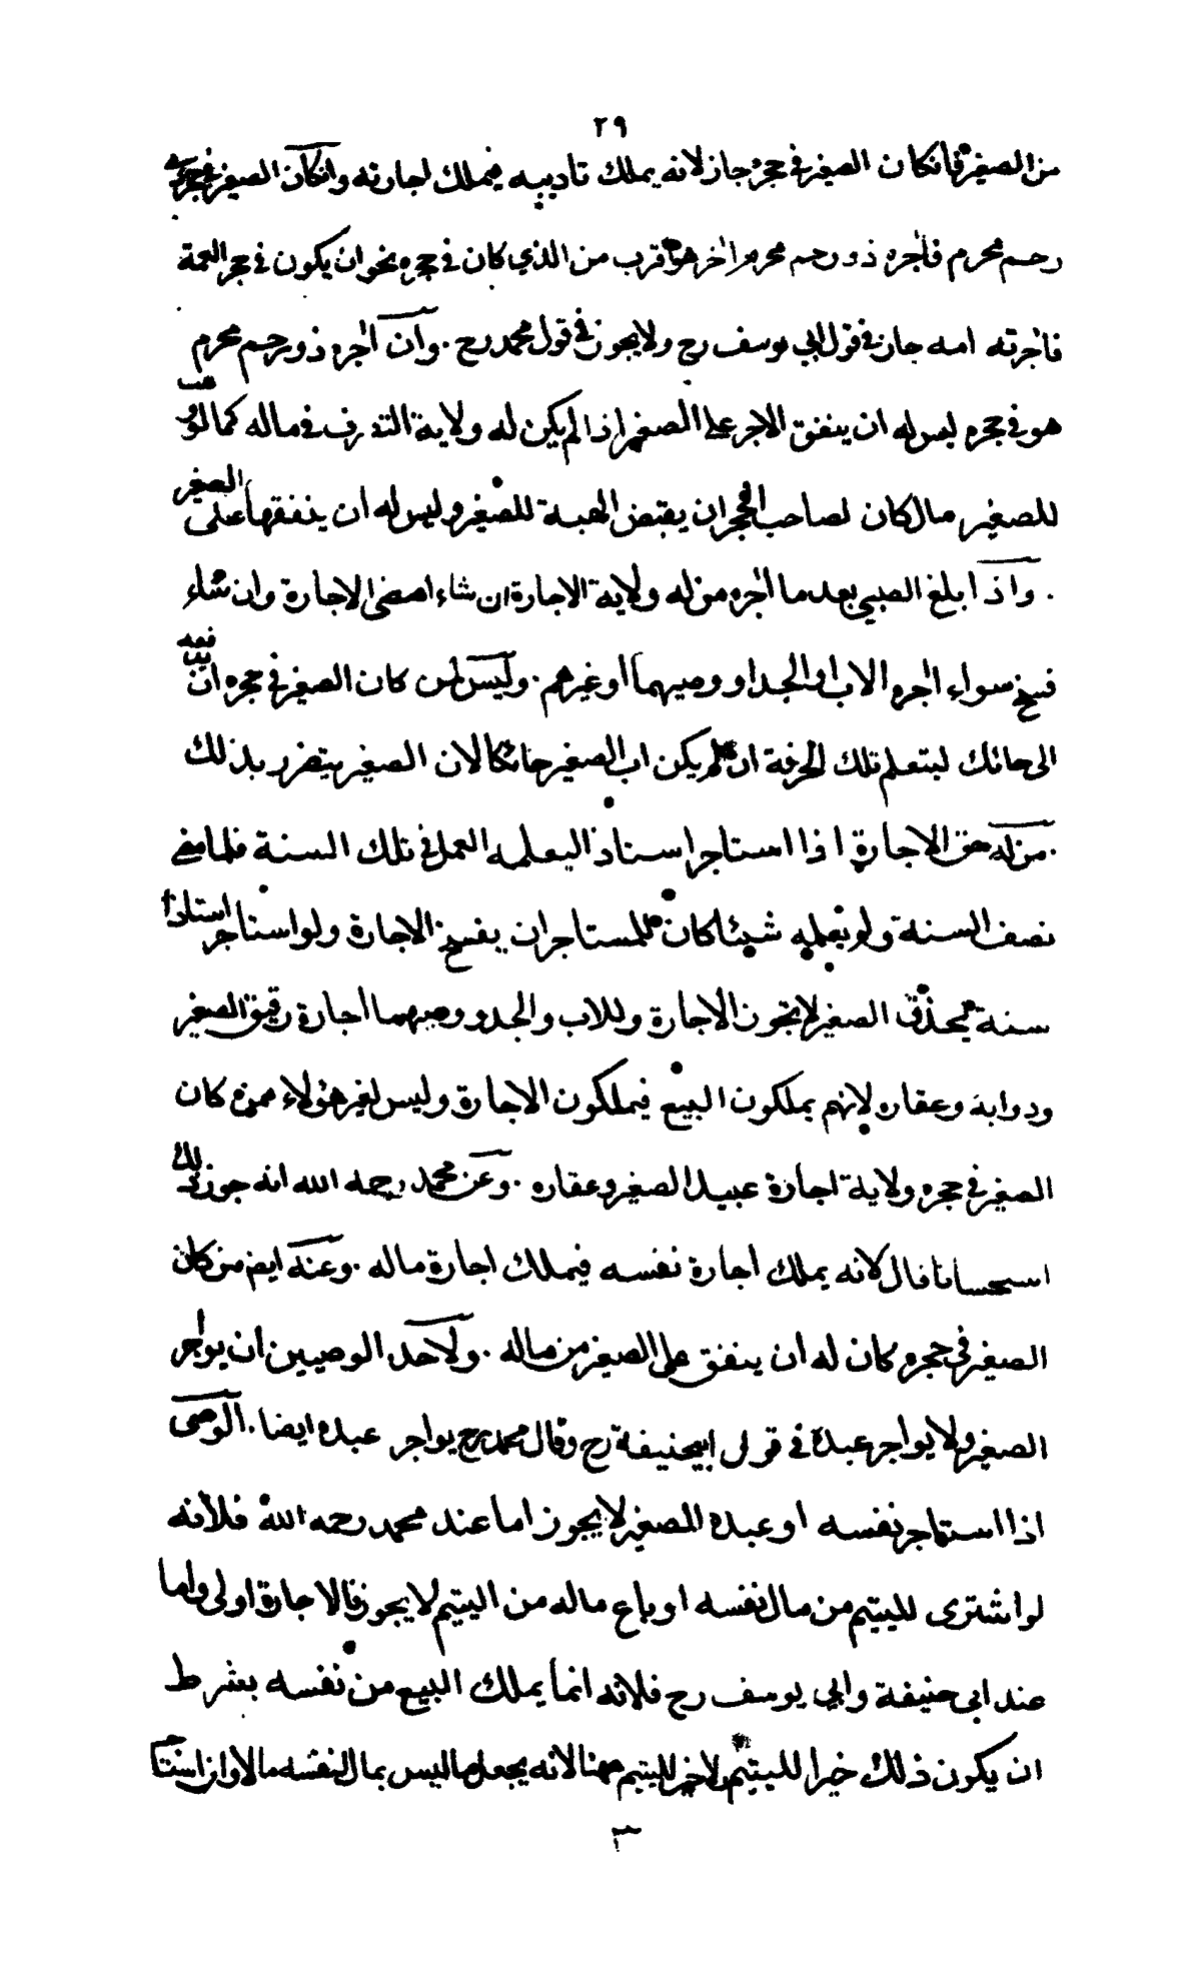 ٢٩
من الصغير فانكان الصغير في حجره جاز لانه يملك تاديبه فيملك اجارته وانكان الصغير في حجر ذي
رحم محرم فآجره ذو رحم محرم آخر هو اقرب من الذي كان في حجره نحو ان يكون في حجر العمة
فآجرته امه جاز في قول ابي يوسف رح ولا يجوز في قول محمد رح . وان آجره ذو رحم محرم
هو في حجره ليس له ان ينفق الاجر على الصغير اذا لم يكن له ولاية التصرف في ماله كما لو وهب
للصغير مال كان لصاحب الحجر ان يقبض الهبة للصغير وليس له ان ينفقها على الصغير
. واذا بلغ الصبي بعد ما آجره من له ولاية الاجارة ان شاء امضى الاجارة وان شاء
فسخ سواء آجره الاب او الجد او وصيهما او غيرهم . وليس لمن كان الصغير في حجره ان يدفعه
الى حائك ليتعلم تلك الحرفة ان لم يكن اب الصغير حائكا لان الصغير يتضرر بذلك
. من له حق الاجارة اذا استاجر استاذا ليعلمه العمل في تلك السنة فلما مضى
نصف السنة ولم يعلمه شيئا كان للمستاجر ان يفسخ الاجارة ولو استاجر استاذا
سنة ليحذق الصغير لا يجوز الاجارة وللاب والجد ووصيهما اجارة رقيق الصغير
ودوابه وعقاره لانهم يملكون البيع فيملكون الاجارة وليس لغير هؤلاء ممن كان
الصغير في حجره ولاية اجارة عبيد الصغير وعقاره . وعن محمد رحمه الله انه جوز ذلك
استحسانا قال لانه يملك اجارة نفسه فيملك اجارة ماله . وعنه ايضا من كان
الصغير في حجره كان له ان ينفق على الصغير من ماله . ولاحد الوصيين ان يواجر
الصغير ولا يواجر عبده في قول ابيحنيفة رح وقال محمد رح يواجر عبده ايضا . الوصى
اذا استاجر نفسه او عبده للصغير لا يجوز اما عند محمد رحمه الله فلأنه
لو اشترى لليتيم من مال نفسه او باع ماله من اليتيم لا يجوز فالاجارة اولى واما
عند ابى حنيفة وابي يوسف رح فلانه انما يملك البيع من نفسه بشرط
ان يكون ذلك خيرا لليتيم ولا خير لليتيم ههنا لانه يجعل ما ليس بمال لنفسه مالا وان استا